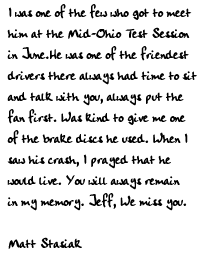 I was one of the few who got to meet
him at the Mid-Ohio Test Session
in June.He was one of the friendest
drivers there always had time to sit
and talk with you, always put the
fan first. Was kind to give me one
of the brake discs he used. When I
saw his crash, I prayed that he
would live. You will aways remain
in my memory. Jeff, We miss you.

Matt Stasiak